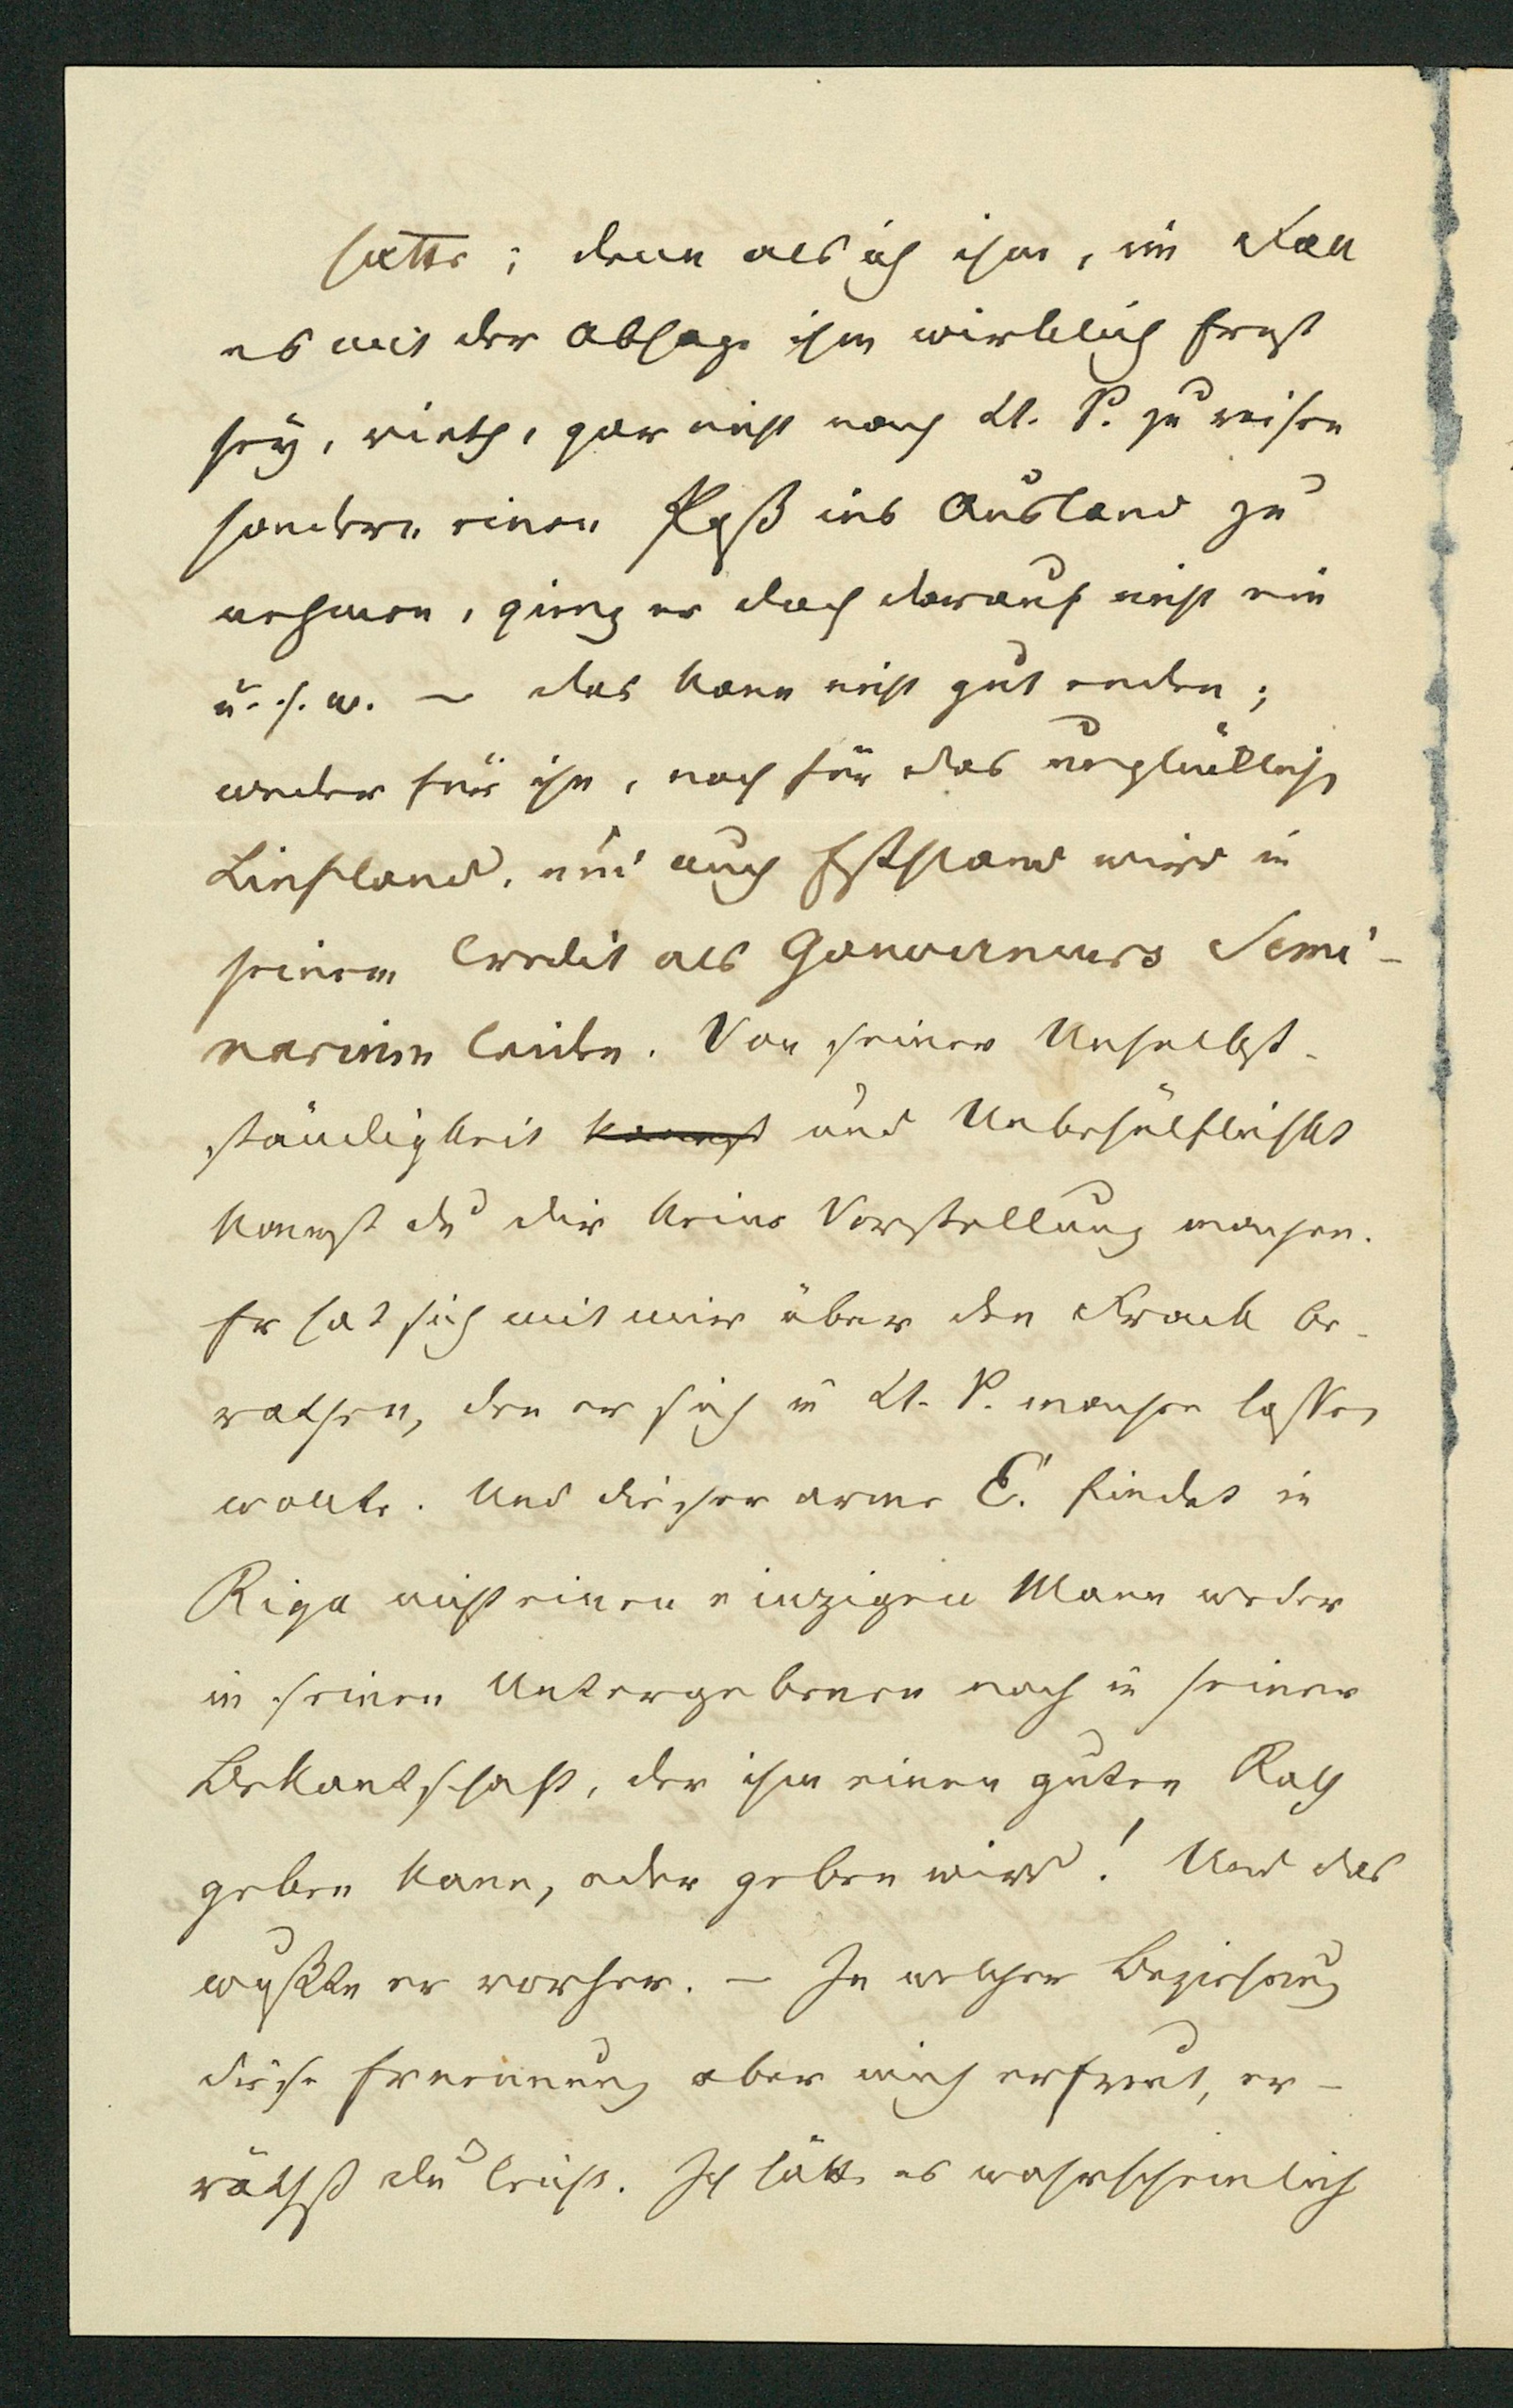 hatte; denn als ich ihm, im Fall
es mit der Absage ihm wirklich Ernst
sey, rieth, gar nicht nach St. P. zu reisen
sondern einen Paß ins Ausland zu
nehmen, ging er doch darauf nicht ein
u. s. w. – das kann nicht gut enden;
weder für ihn, noch für das unglückliche
Liefland, und auch Esthland wird in
seinem Credit als Gouverneurs Semi-
narium leiden. Von seiner Unselbst-
ständigkeit kannst und Unbehülflichkt
kannst du dir keine Vorstellung machen.
Er hat sich mit mir über den Frack be-
rathen, den er sich in St. P. machen lassen
wollte. Und dieser arme E. findet in
Riga nicht einen einzigen Mann weder
in seinen Untergebenen noch in seiner
Bekantschaft, der ihm einen guten Rath
geben kann, oder geben wird! Und das
wußte er vorher. – In welcher Beziehung
diese Ernennung aber mich erfreut, er-
räthst du leicht. Ich hätte es wahrscheinlich